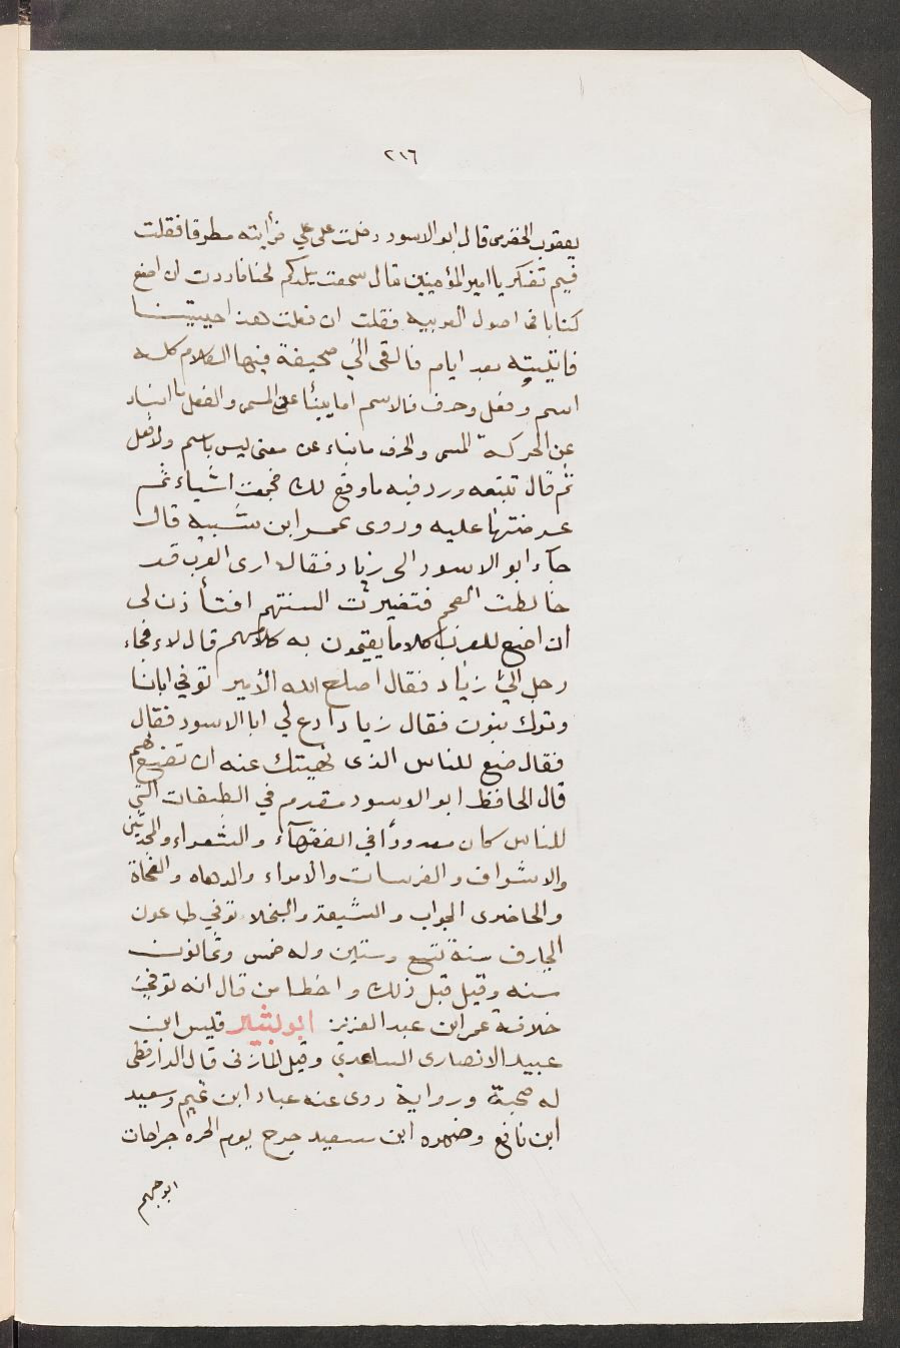 ٢١٦
يعقوب الحضرمى قال ابو الاسود دخلت على علي فرأيته مطرقا فقلت
فيم تفكر يا امير المؤمنين قال سمعت ببلدكم لحنا فاردت ان اضع
كتابا فى اصول العربيه فقلت ان فعلت هذا احييتنا
فاتيته بعد ايام فالقى الي صحيفة فيها الكلام كله
اسم وفعل وحرف فالاسم اما ينبأ عن المسمى والفعل ما انباء
عن الحركة المسمى والحرف ما انباء عن معنى ليس باسم ولا فعل
ثم قال تتبعه وزد فيه ما وقع لك فجمعت اشياء ثم
عرضتها عليه وروى عمر ابن شبيه قال
جآء ابو الاسود الى زياد فقال ارى العرب قد
خالطت العجم فتغيرت السنتهم افتأذن لى
ان اضع للعرب كلاما يقيمون به كلامهم قال لاء فجاء
رجل الئ زياد فقال اصلح الله الأمير توفي ابانا
وترك بنوت فقال زياد ادع لي ابا الاسود فقال
فقال ضع للناس الذى نهيتك عنه ان تضع لهم
قال الحافظ ابو الاسود مقدم في الطبقات التي
للناس كان معدودأ في الفقهآء والشعراء والمحدثين
والاشراف والفرسات والامراء والدهاه والنحاة
والحاضرى الجواب والشيعة والبخلا توفي طاعون
الجارف سنة تسع وستين وله خمس وثمانون
سنه وقيل قبل ذلك واخطا من قال انه توفي في
خلافة عمر ابن عبد العزيز ابو بشير قيس ابن
عبيد الانصارى الساعدي وقيل المازنى قال الدارقطى
له صحبة ورواية روى عنه عباد ابن تميم وسعيد
ابن نافع وضمره ابن سعيد جرح يوم الحره جراحات
ابو جهم